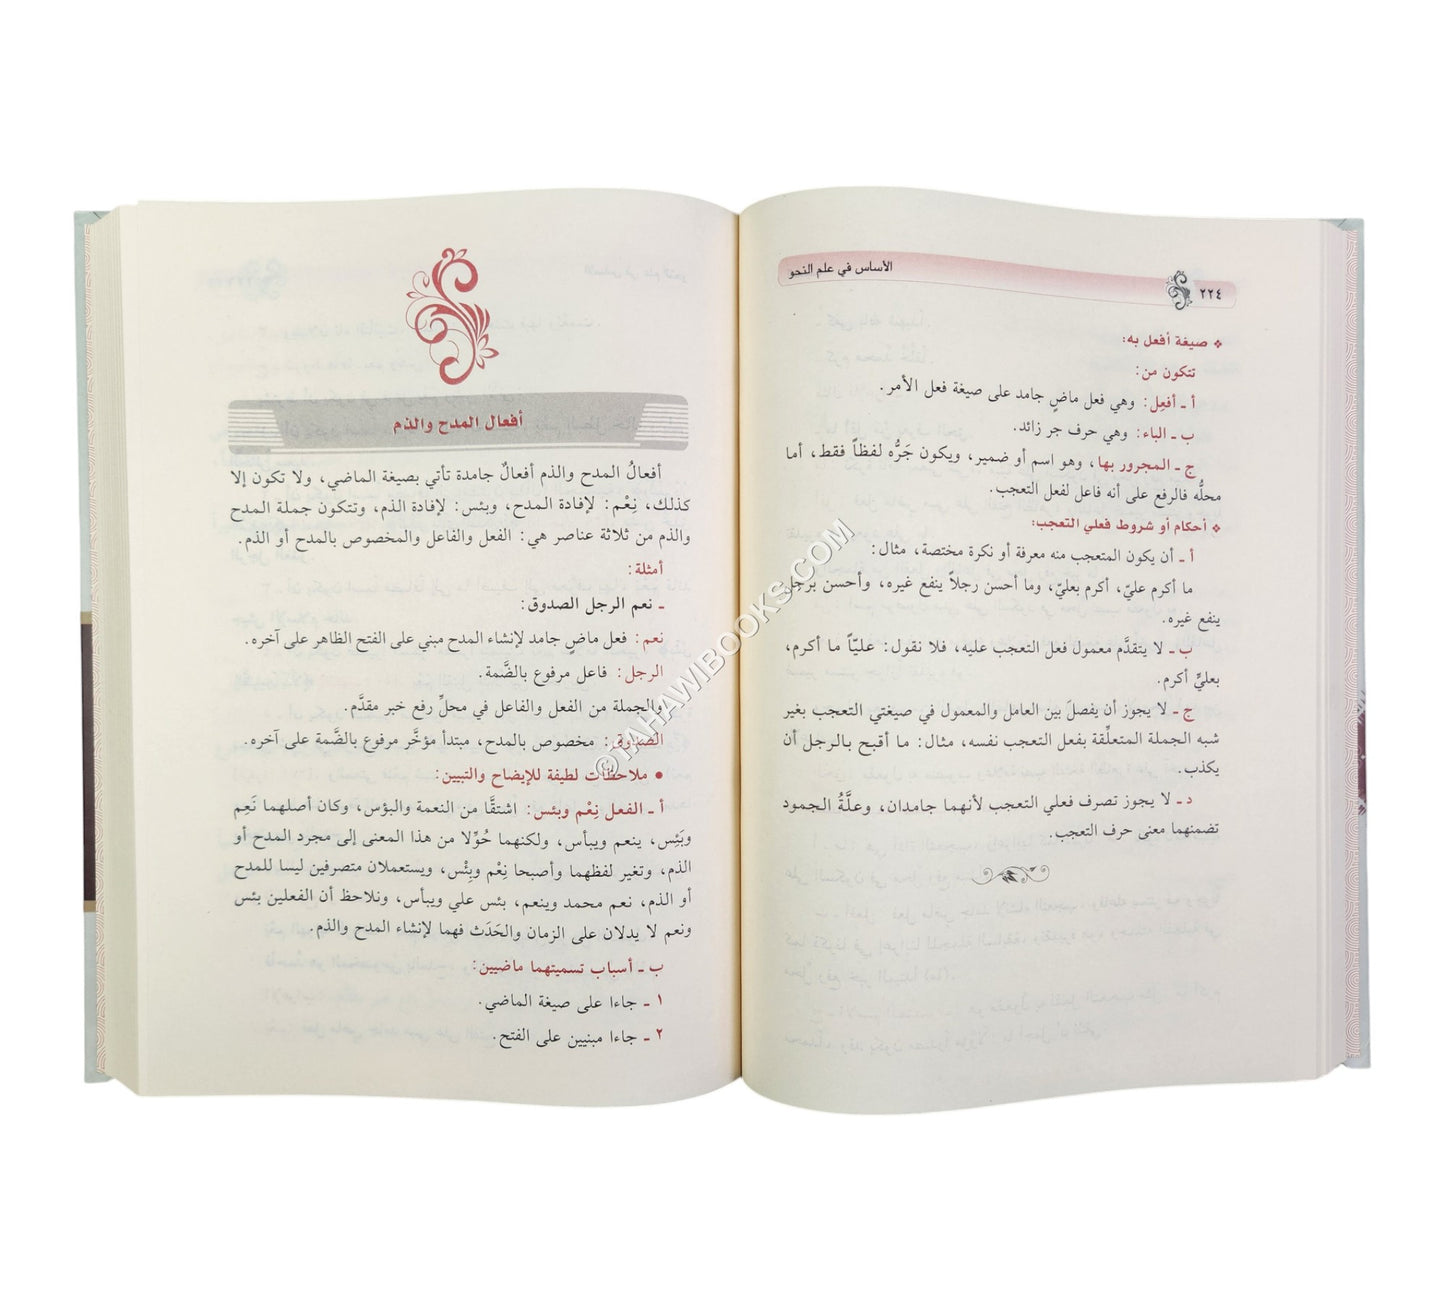 ٢٢٤
الأساس في علم النحو
❖ صيغة أفعل به:
تتكون من:
أ ـ أفعِل: وهي فعل ماضٍ جامد على صيغة فعل الأمر.
ب ـ الباء: وهي حرف جر زائد.
ج ـ المجرور بها، وهو اسم أو ضمير، ويكون جَرُّه لفظاً فقط، أما
محلُّه فالرفع على أنه فاعل لفعل التعجب.
❖ أحكام أو شروط فعلي التعجب:
أ ـ أن يكون المتعجب منه معرفة أو نكرة مختصة، مثال:
ما أكرم عليّ، أكرم بعليّ، وما أحسن رجلاً ينفع غيره، وأحسن برجل
ينفع غيره.
ب ـ لا يتقدَّم معمول فعل التعجب عليه، فلا نقول: عليّاً ما أكرم،
بعليٍّ أكرم.
ج ـ لا يجوز أن يفصلَ بين العامل والمعمول في صيغتي التعجب بغير
شبه الجملة المتعلِّقة بفعل التعجب نفسه، مثال: ما أقبح بالرجل أن
يكذب.
د ـ لا يجوز تصرف فعلي التعجب لأنهما جامدان، وعلَّةُ الجمود
تضمنهما معنى حرف التعجب.
أفعال المدح والذم
أفعالُ المدح والذم أفعالٌ جامدة تأتي بصيغة الماضي، ولا تكون إلا
كذلك، نِعْم: لإفادة المدح، وبئس: لإفادة الذم، وتتكون جملة المدح
والذم من ثلاثة عناصر هي: الفعل والفاعل والمخصوص بالمدح أو الذم.
أمثلة:
ـ نعم الرجل الصدوق:
نعم: فعل ماضٍ جامد لإنشاء المدح مبني على الفتح الظاهر على آخره.
الرجل: فاعل مرفوع بالضَّمة.
والجملة من الفعل والفاعل في محلِّ رفع خبر مقدَّم.
الصدوق: مخصوص بالمدح، مبتدأ مؤخَّر مرفوع بالضَّمة على آخره.
• ملاحظات لطيفة للإيضاح والتبيين:
أ ـ الفعل نِعْم وبئس: اشتقَّا من النعمة والبؤس، وكان أصلهما نَعِم
وبَئِس، ينعم ويبأس، ولكنهما حُوِّلا من هذا المعنى إلى مجرد المدح أو
الذم، وتغير لفظهما وأصبحا نِعْم وبِئْس، ويستعملان متصرفين ليسا للمدح
أو الذم، نعم محمد وينعم، بئس علي ويبأس، ونلاحظ أن الفعلين بئس
ونعم لا يدلان على الزمان والحَدَث فهما لإنشاء المدح والذم.
ب ـ أسباب تسميتهما ماضيين:
١ ـ جاءا على صيغة الماضي.
٢ ـ جاءا مبنيين على الفتح.
©TAHAWIBOOKS.COM